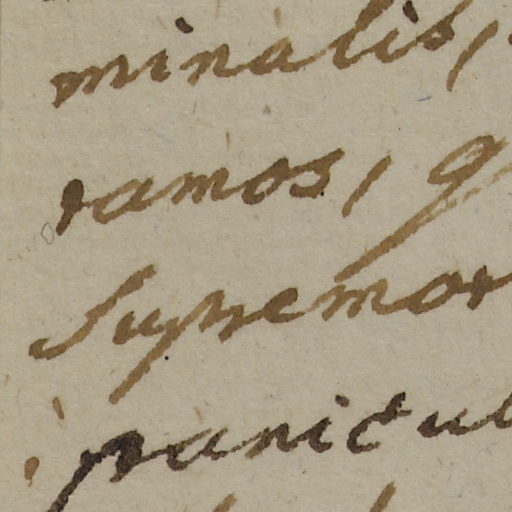 minalis,
ramos, q
supremor
panicul